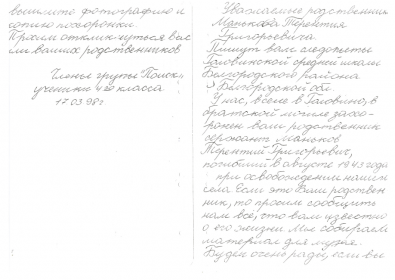 Уважаемые родственники
Манькова Терентия
Григорьевича.
Пишут вам следопыты
Головинской средней школы
Белгородского района
Белгородской обл.
У нас, в селе в Головино, в
братской могиле захо-
ронен ваш родственник
сержант Маньков
Терентий Григорьевич,
погибший в августе 1943 года
при освобождении нашего
села. Если это Ваш родствен-
ник, то просим сообщить
нам всё, что вам известно
о его жизни. Мы собираем
материал для музея.
Будем очень рады, если вы
вышлите фотографию и
копию похоронки.
Просим откликнуться вас
или ваших родственников
Члены группы "Поиск",
ученики 4 класса
17.03.98г